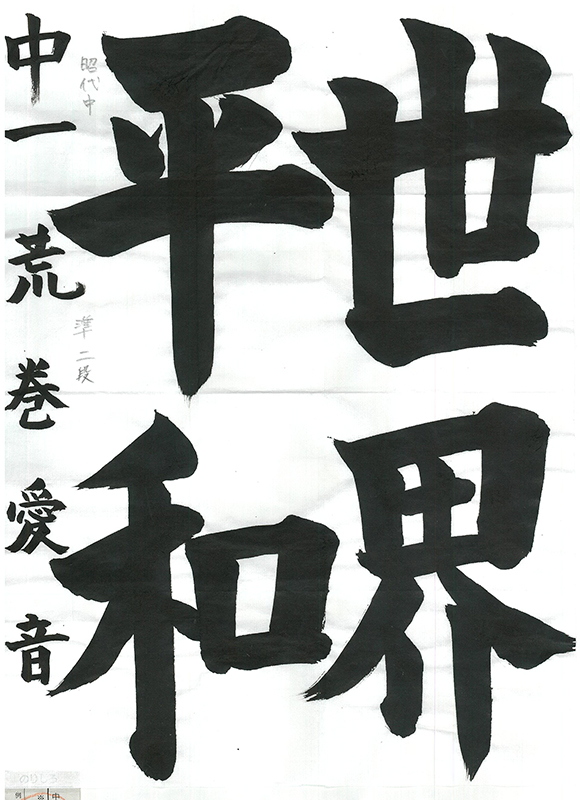 世界
平和
昭代中
準二段
中一 荒巻愛音
のりしろ